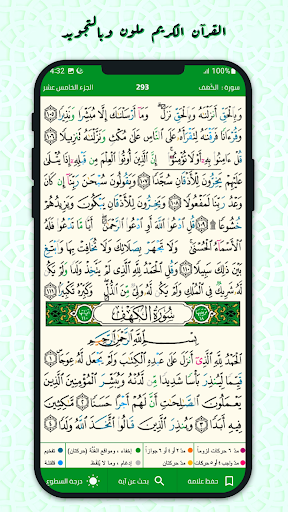 القرآن الكريم ملون وبالتجويد
4:32
سورة : الكهف
293
الجزء الخامس عشر
وَبِالْحَقِّ أَنزَلْنَاهُ وَبِالْحَقِّ نَزَلَ وَمَا أَرْسَلْنَاكَ إِلَّا مُبَشِّرًا وَنَذِيرًا ١٠٥
وَقُرْآنًا فَرَقْنَاهُ لِتَقْرَأَهُ عَلَى النَّاسِ عَلَىٰ مُكْثٍ وَنَزَّلْنَاهُ تَنزِيلًا ١٠٦
قُلْ آمِنُوا بِهِ أَوْ لَا تُؤْمِنُوا إِنَّ الَّذِينَ أُوتُوا الْعِلْمَ مِن قَبْلِهِ إِذَا يُتْلَىٰ
عَلَيْهِمْ يَخِرُّونَ لِلْأَذْقَانِ سُجَّدًا ١٠٧ وَيَقُولُونَ سُبْحَانَ رَبِّنَا إِن كَانَ
وَعْدُ رَبِّنَا لَمَفْعُولًا ١٠٨ وَيَخِرُّونَ لِلْأَذْقَانِ يَبْكُونَ وَيَزِيدُهُمْ
خُشُوعًا ١٠٩ قُلِ ادْعُوا اللَّهَ أَوِ ادْعُوا الرَّحْمَٰنَ أَيًّا مَّا تَدْعُوا فَلَهُ
الْأَسْمَاءُ الْحُسْنَىٰ وَلَا تَجْهَرْ بِصَلَاتِكَ وَلَا تُخَافِتْ بِهَا وَابْتَغِ
بَيْنَ ذَٰلِكَ سَبِيلًا ١١٠ وَقُلِ الْحَمْدُ لِلَّهِ الَّذِي لَمْ يَتَّخِذْ وَلَدًا وَلَمْ يَكُن
لَّهُ شَرِيكٌ فِي الْمُلْكِ وَلَمْ يَكُن لَّهُ وَلِيٌّ مِّنَ الذُّلِّ وَكَبِّرْهُ تَكْبِيرًا ١١١
سُورَةُ الْكَهْفِ
بِسْمِ اللَّهِ الرَّحْمَٰنِ الرَّحِيمِ
الْحَمْدُ لِلَّهِ الَّذِي أَنزَلَ عَلَىٰ عَبْدِهِ الْكِتَابَ وَلَمْ يَجْعَل لَّهُ عِوَجًا ١
قَيِّمًا لِّيُنذِرَ بَأْسًا شَدِيدًا مِّن لَّدُنْهُ وَيُبَشِّرَ الْمُؤْمِنِينَ الَّذِينَ
يَعْمَلُونَ الصَّالِحَاتِ أَنَّ لَهُمْ أَجْرًا حَسَنًا ٢ مَّاكِثِينَ
فِيهِ أَبَدًا ٣ وَيُنذِرَ الَّذِينَ قَالُوا اتَّخَذَ اللَّهُ وَلَدًا ٤
مد ٦ حركات لزوماً
مد ٢ أو ٤ أو ٦ جوازاً
إخفاء ، ومواقع الغُنَّة (حركتان)
تفخيم
مد واجب ٤ أو ٥ حركات
مد حركتان
إدغام ، وما لا يُلفظ
قلقلة
حفظ علامة
بحث عن آية
درجة السطوع